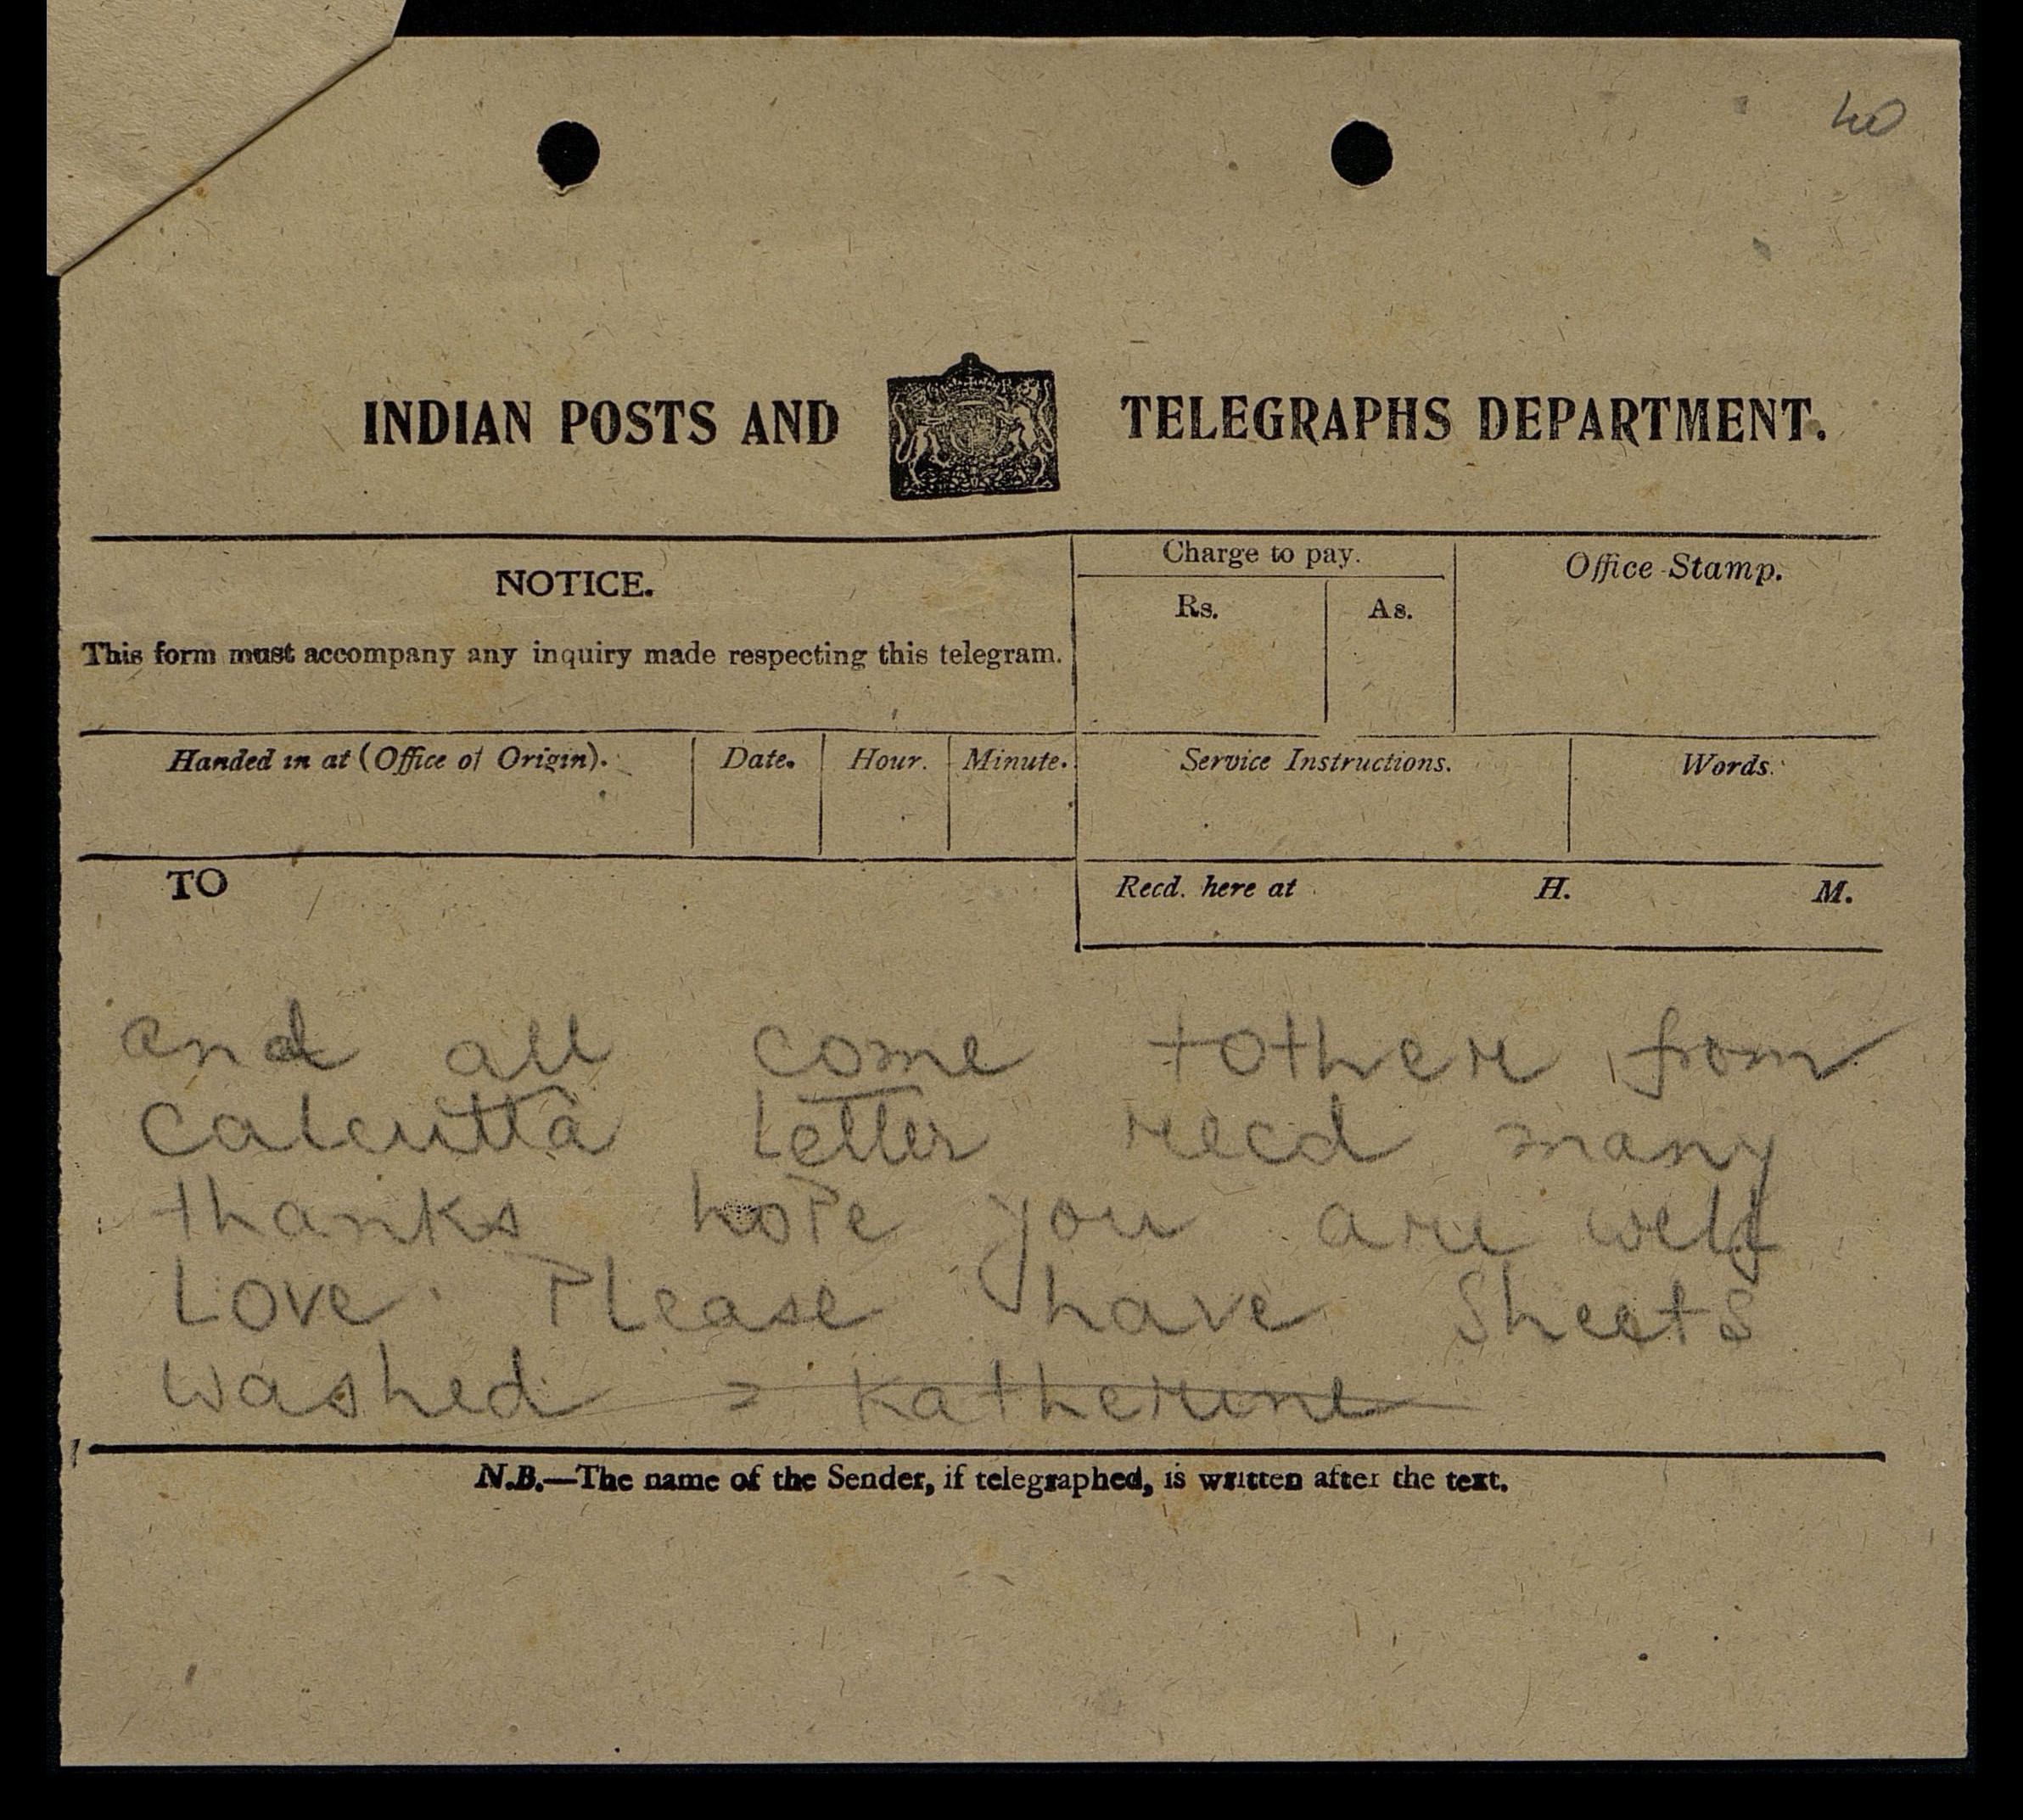 40
INDIAN POSTS AND TELEGRAPHS DEPARTMENT.
NOTICE.
This form must accompany any inquiry made respecting this telegram.
Charge to pay.
Rs. As.
Office Stamp.
Handed in at (Office of Origin). Date. Hour. Minute. Service Instructions. Words.
TO
Recd. here at H. M.
and all come tother from
Calcutta Letter recd many
thanks hope you are well
Love Please have Sheets
washed = Katherine
N.B.—The name of the Sender, if telegraphed, is written after the text.